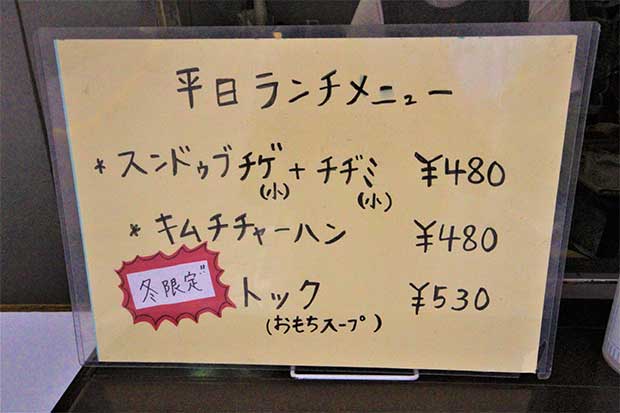 平日ランチメニュー
* スンドゥブチゲ(小) + チヂミ(小) ¥480
* キムチチャーハン ¥480
冬限定!! トック ¥530
(おもちスープ)